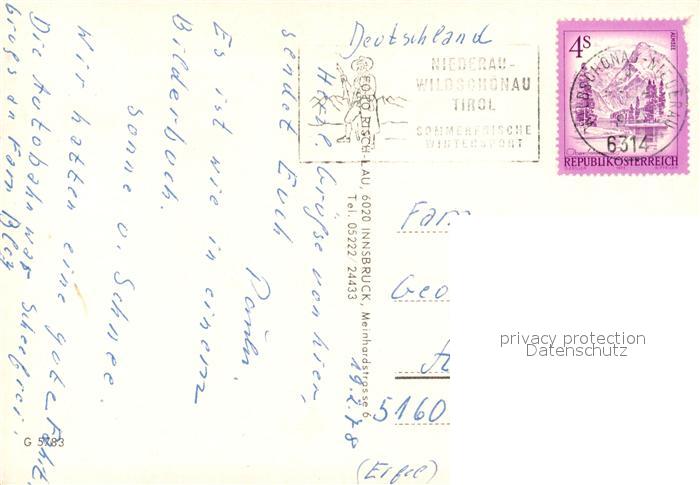 Deutschland
NIEDERAU-
WILDSCHÖNAU
TIROL
SOMMERFRISCHE
WINTERSPORT
4S
ALMSEE
WILDSCHÖNAU-NIEDERAU
6314
REPUBLIK ÖSTERREICH
Wir hatten eine gute Fahrt.
Die Autobahn war
Sonne u. Schnee.
Es ist wie in einem
Bilderbuch.
Herzl. Grüße von hier,
sendet Euch
19.2.78
LAU, 6020 INNSBRUCK, Meinhardstrasse 6
Tel. 05222/24433
Fam
Geo
5160
(Eifel)
G 5783
privacy protection
Datenschutz